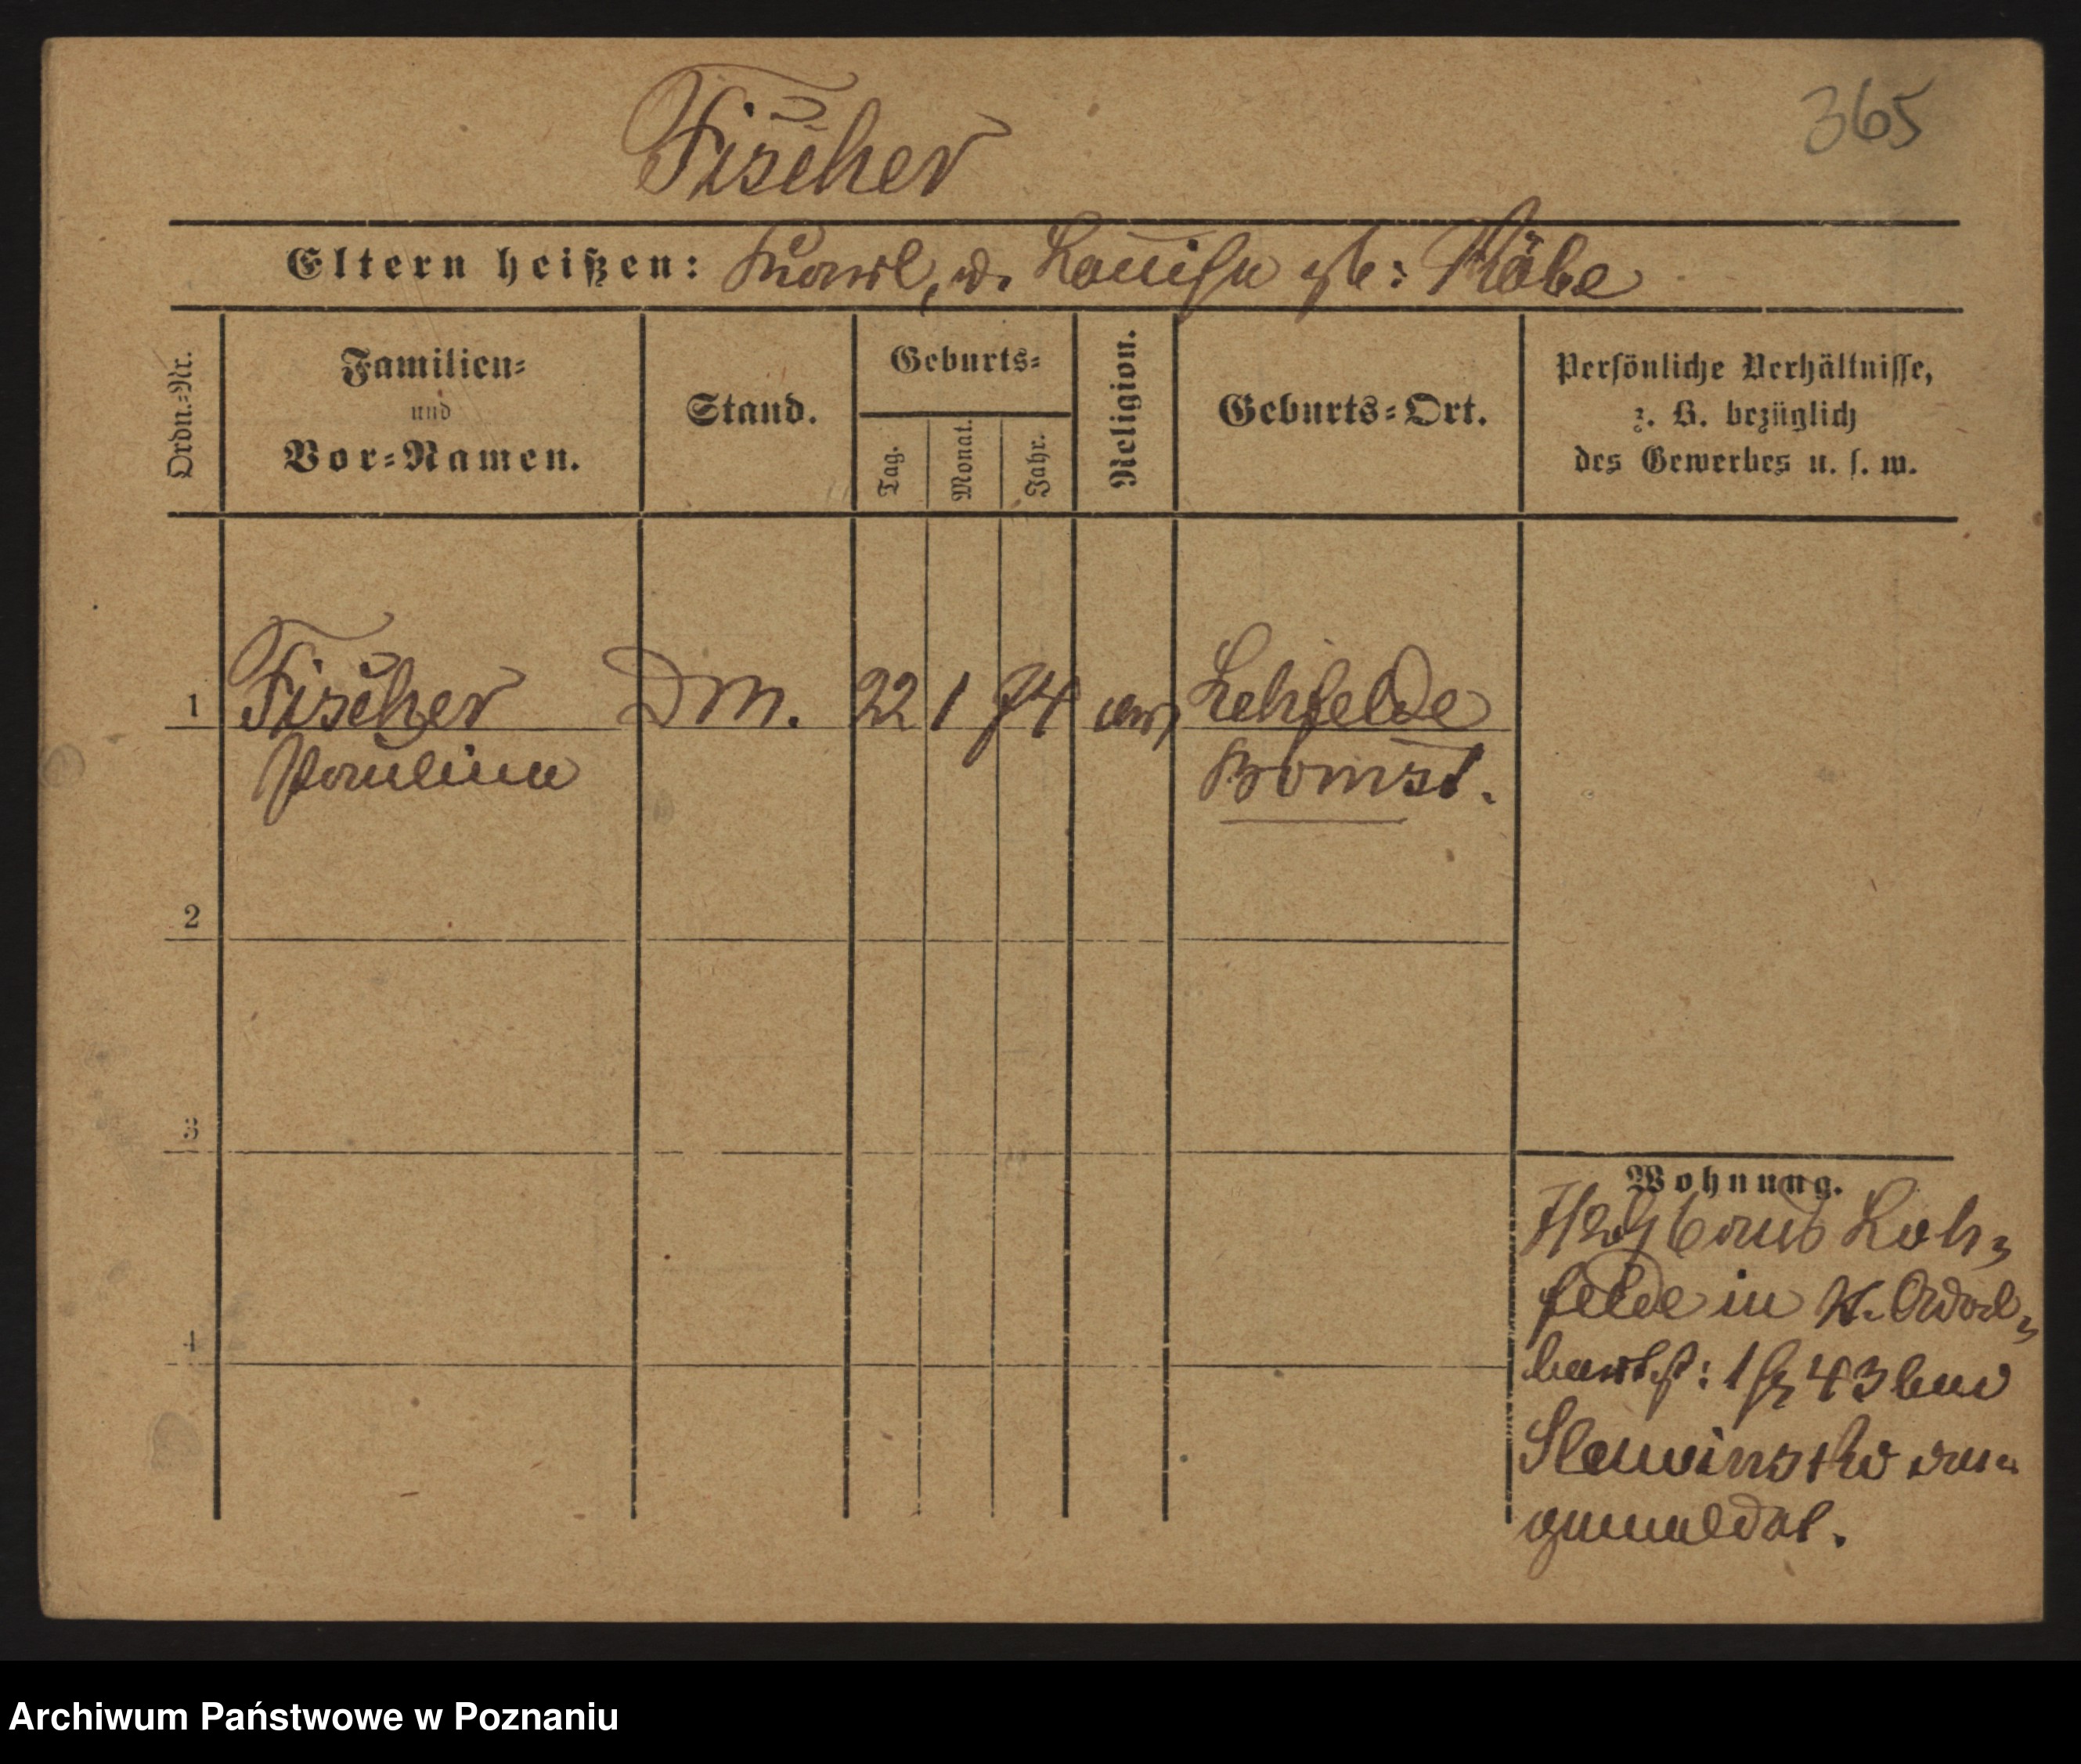 Fischer
365
Eltern heißen: Karl, u. Louise gb: Kläbe
Ordn.-Nr.
Familien-
und
Vor-Namen.
Stand.
Geburts-
Tag.
Monat.
Jahr.
Religion.
Geburts-Ort.
Persönliche Verhältnisse,
z. B. bezüglich
des Gewerbes u. s. w.
1 Fischer Dm. 22 1 74 ev Lehfelde
Pauline Bomst.
2
3
4
Wohnung.
aus Leh-
felde in
43 bei
gemeldet.
Archiwum Państwowe w Poznaniu